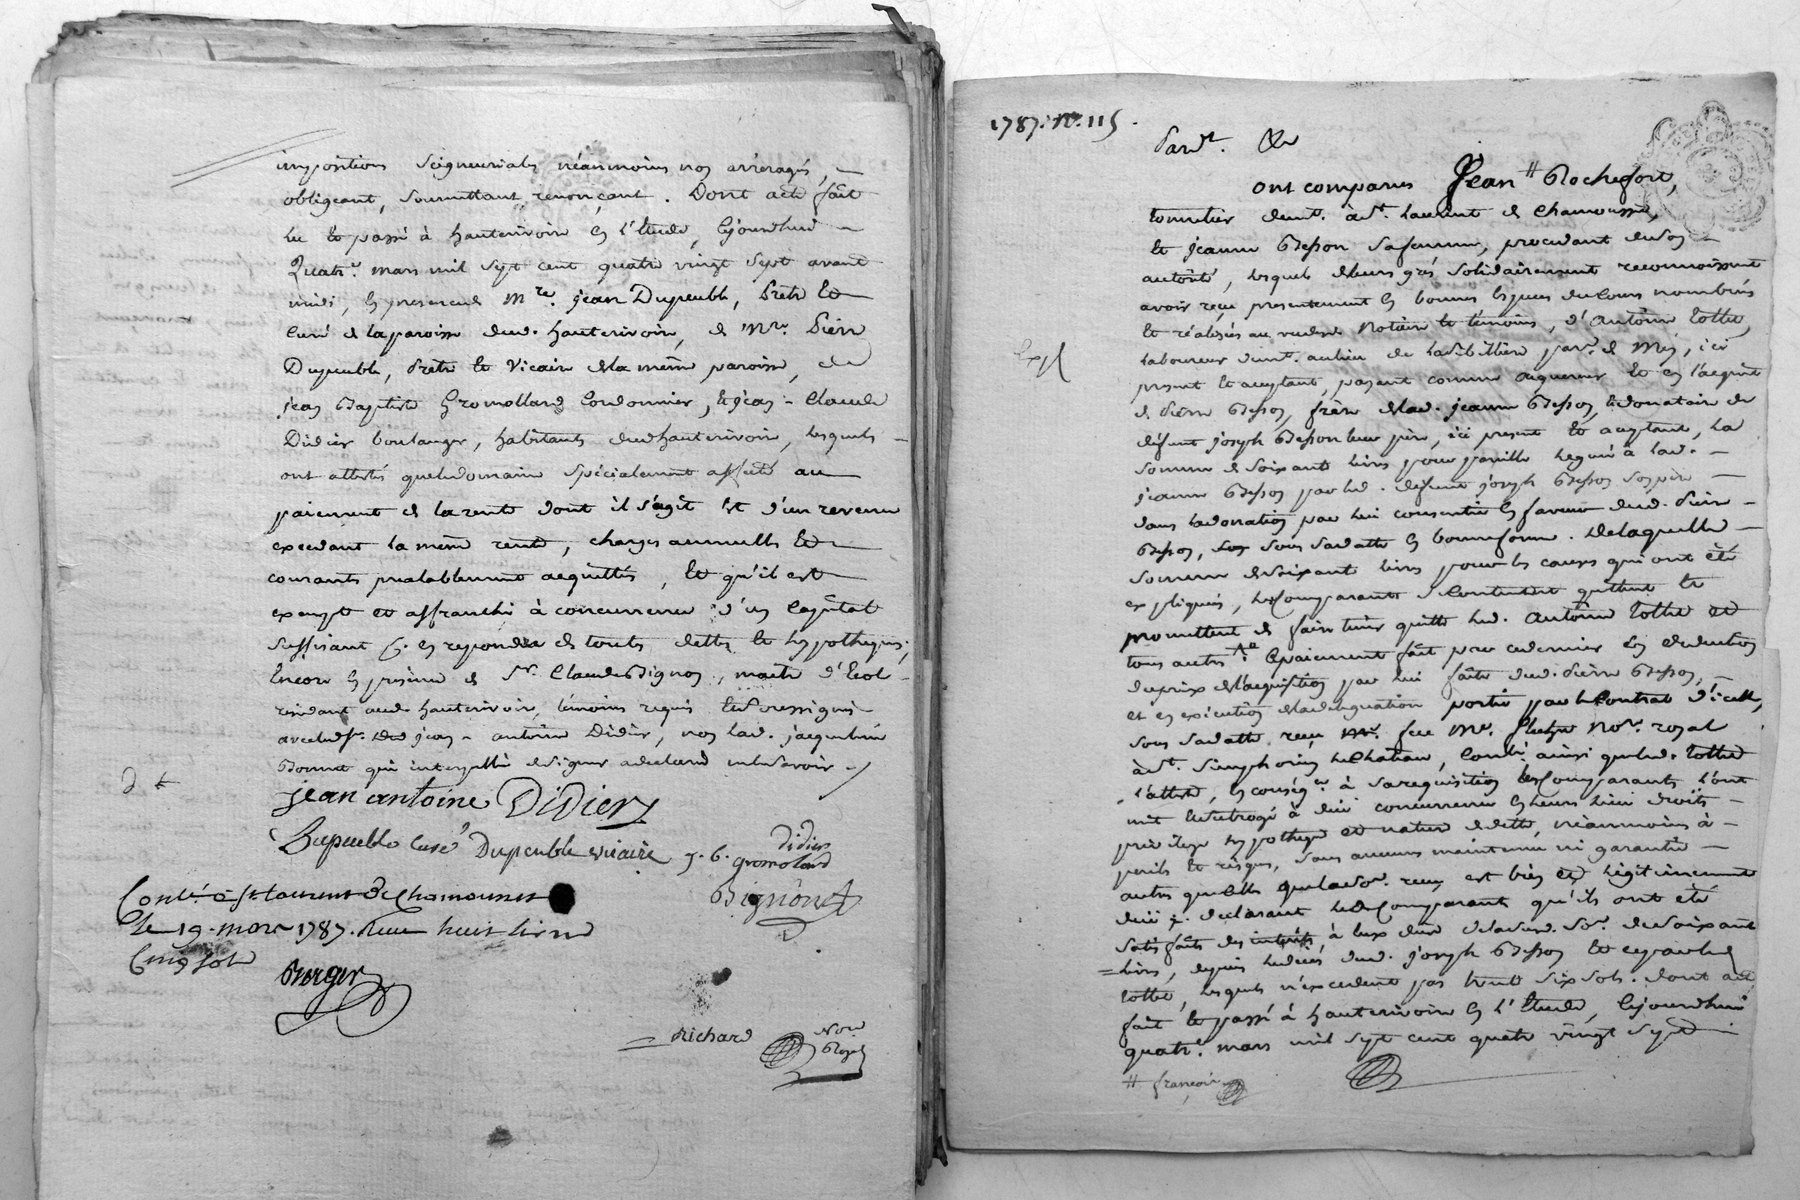 impositions seigneuriales néanmoins non arréragés,
obligeant, soumettant, renonçant. Dont acte fait
lu et passé à hauterivoire en l'Etude, cejourdhui
Quatre mars mil sept cent quatre vingt sept avant
midi, en presence de Mre. jean Dupeuble, Prêtre et
Curé de la paroisse dud. hauterivoire, de Mre. Pierre
Dupeuble, Prêtre et Vicaire de la même paroisse, de
jean Baptiste Gromolland Cordonnier, et jean-Claude
Didier boulanger, habitants dud hauterivoire, lesquels
ont attestés que le domaine spécialement affecté au
paiement de la rente dont il s'agit est d'un revenu
excedant la même rente, charges annuelles et
courants prealablement acquittés, et qu'il est
exempt et affranchi à concurrence d'un Capital
suffisant pr. en repondre de touts dettes et hypotheques;
Encore en présence de Sr. Claude Bignon, maitre d'Ecole
residant aud hauterivoire, témoins requis et soussignés
avec led Sr. jean-antoine Didier, non lad. jacqueline
Bonnet qui interpellée de signer a declaré ne le savoir
jean antoine DiDier
Dupeuble Curé Dupeuble vicaire j. C. Didier
gromoland
Bignon
Contlé à St Laurent de Chamousset
Le 19. mars 1787. Reçu huit livres
Cinq sols
Berger
Richard
Nore
Royal
1787. N°. 115.
Pardt. &c
ont comparus Jean # Rochefort,
tonnelier demt. à St. Laurent de Chamousset,
et jeanne Besson sa femme, procedant de son
autorité, lesquels de leurs grés solidairement reconnoissent
avoir reçu presentement en bonnes especes de cours nombrés
et réalisés au vu desd. Notaire et témoins, d'Antoine Cotte,
laboureur demt. au lieu de parse. de Mey, ici
present et acceptant, payant comme acquereur et en l'acquit
de Pierre Besson, frère de lad. jeanne Besson, et donataire de
défunt joseph Besson leur père, ici present et acceptant, la
somme de soixante livres pour pareille leguée à lad.
jeanne Besson par led. defunt joseph Besson son père
dans la donation par lui consentie en faveur dud. Pierre
Besson, sous sa datte en bonne forme. De laquelle
somme de soixante livres pour les causes qui ont été
expliqués, les Comparants se contentent quittent et
promettent de faire tenir quitte led. Antoine Cotte et
tous autres. Ce paiement fait par ce dernier en deduction
du prix de l'acquisition par lui faite dud. Pierre Besson,
et en exécution de la delegation portée par le Contrat d'icelle,
sous sa datte, reçu feu Me. Nore. royal
à St. Simphorien le Château, Contlé. ainsi que led. Cotte
l'atteste, en conséqce. à sa requisition les Comparants l'ont
mit et subrogé à due concurrence en leurs lieu droits
privilege hypotheque et nature de dette, néanmoins à
perils et risques, sans aucune maintenue ni garantie
autres que celle que lad so. reçue est bien et légitimement
due; declarant lesd Comparants qu'ils ont été
satisfaits des intérêts, à eux dus de lad. So. de soixante
livres, depuis le decès dud. joseph Besson et ce par led
Cotte, lesquels n'excedent pas trente six sols. dont acte
fait et passé à hauterivoire en l'Etude, cejourdhui
quatre. mars mil sept cent quatre vingt sept
# françois